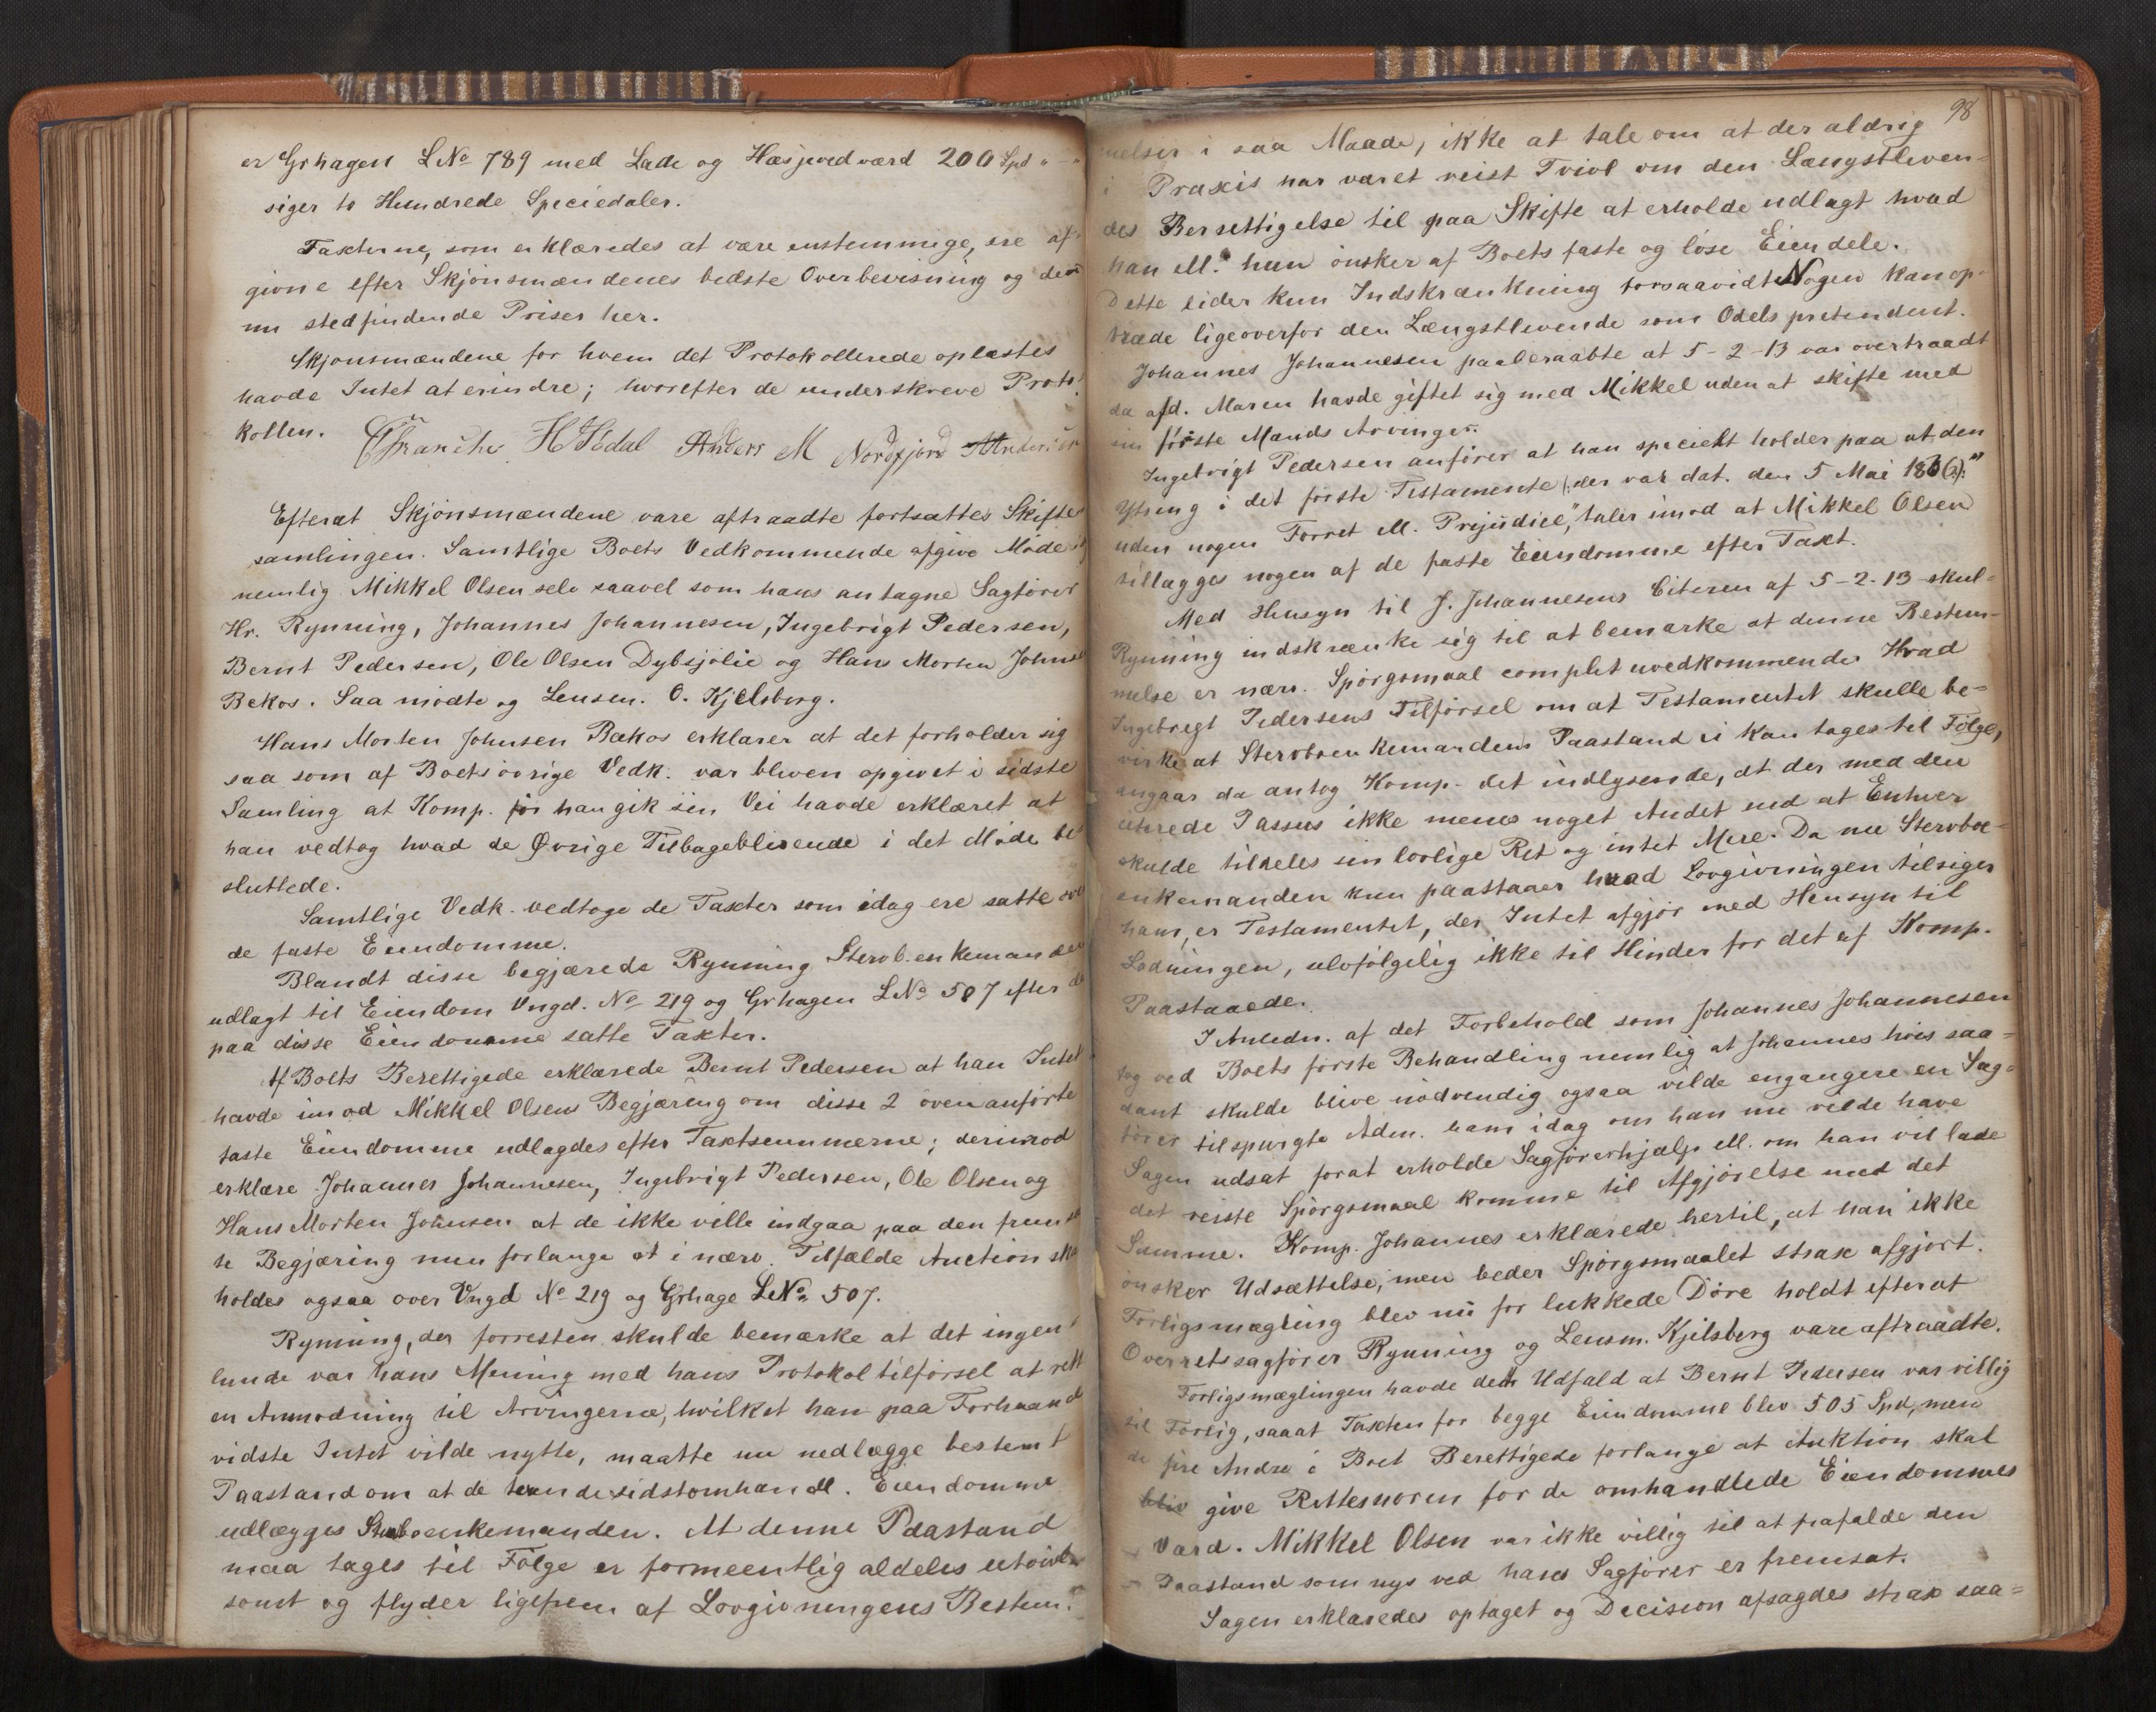 er Grhagen LNo 789 med Lade og Hæsjeved værd 200 Spd " - "
siger to Hundrede Speciedaler.
Taxterne, som erklæredes at være enstemmige, ere af-
givne efter Skjönsmændenes bedste Overbevisning og de
nu stedfindende Priser her.
Skjönsmændene for hvem det Protokollerede oplæstes
havde Intet at erindre; hvorefter de underskreve Proto-
kollen. H Hödal Anders M Nordfjord
Efterat Skjönsmændene vare aftraadte fortsattes Skifte
samlingen. Samtlige Boets Vedkommende afgive Möde
nemlig Mikkel Olsen selv saavel som hans antagne Sagförer
Hr. Rynning, Johannes Johannesen, Ingebrigt Pedersen,
Bernt Pedersen, Ole Olsen Dybsjölie og Hans Morten Johnsen
Bekos. Saa mödte og Lensm. O. Kjelsberg.
Hans Morten Johnsen Bækos erklærer at det forholder sig
saa som af Boets övrige Vedk. var bleven opgivet i sidste
Samling at Komp. för han gik sin Vei havde erklæret at
han vedtog hvad de Øvrige Tilbageblivende i det Möde be
sluttede.
Samtlige Vedk. vedtoge de Taxter som idag ere satte over
de faste Eiendomme.
Blandt disse begjærede Rynning Stervb.enkemanden
udlagt til Eiendom Vngd. No 219 og Grhagen LNo 507 efter de
paa disse Eiendomme satte Taxter.
Af Boets Berettigede erklærede Bernt Pedersen at han Intet
havde imod Mikkel Olsens Begjæring om disse 2 ovenanförte
faste Eiendomme udlagdes efter Taxtsummerne; derimod
erklære Johannes Johannesen, Ingebrigt Pedersen, Ole Olsen og
Hans Morten Johnsen at de ikke ville indgaa paa den fremsat
te Begjæring men forlange at i nærv. Tilfælde Auction skal
holdes ogsaa over Vngd No 219 og Grhage LNo 507.
Rynning, der forresten skulde bemærke at det ingen
lunde var hans Mening med hans Protokoltilförsel at rette
en Anmodning til Arvingerne, hvilket han paa Forhaand
vidste Intet vilde nytte, maatte nu nedlægge bestemt
Paastand om at de tvende sidstomhandl. Eiendomme
udlægges Stervboenkemanden. At denne Paastand
maa tages til Fölge er formeentlig aldeles utvivl
somt og flyder ligefrem af Lovgivningens Bestem-
98
melser i saa Maade, ikke at tale om at der aldrig
i Praxis har været reist Tvivl om den Længstleven-
des Berettigelse til paa Skifte at erholde udlagt hvad
han ell. hun önsker af Boets faste og löse Eiendele.
Dette lider kun Indskrænkning forsaavidt Nogen kan op-
træde ligeoverfor den Længstlevende som Odelspretendent.
Johannes Johannesen paaberaabte at 5-2-13 var overtraadt
da afd. Maren havde giftet sig med Mikkel uden at skifte med
sin förste Mands Arvinger.
Ingebrigt Pedersen anförer at han specielt holder paa at den
Ytring i det förste Testamente (: der var dat. den 5 Mai 1860 (?):) "
uden nogen Forret ell. Prejudice," taler imod at Mikkel Olsen
tillægges nogen af de faste Eiendomme efter Taxt.
Med Hensyn til J. Johannesens Citeren af 5-2-13 skul-
Rynning indskrænke sig til at bemærke at denne Bestem-
melse er nærv. Spörgsmaal complet uvedkommende. Hvad
Ingebregt Pedersens Tilförsel om at Testamentet skulle be-
virke at Stervboenkemandens Paastand ei kan tages til Fölge,
angaar da antog Komp. det indlysende, at der med den
citerede Passus ikke menes noget Andet end at Enhver
skulde tildeles sin lovlige Ret og intet Mere. Da nu Stervboe-
enkemanden kun paastaaer hvad Lovgivningen tilsiger
ham, er Testamentet, der Intet afgjör med Hensyn til
Lodningen, ulvfölgelig ikke til Hinder for det af Komp.
Paastaaede.
I Anledn. af det Forbehold som Johannes Johannesen
tog ved Boets förste Behandling nemlig at Johannes hvis saa-
dant skulde blive nödvendig ogsaa vilde engangere en Sag-
förer tilspurgte Adm. ham idag om han nu vilde have
Sagen udsat forat erholde Sagförerhjælp ell. om han vil lade
det reiste Spörgsmaal komme til Afgjörelse med det
Samme. Komp. Johannes erklærede hertil, at han ikke
önsker Udsættelse, men beder Spörgsmaalet strax afgjort.
Forligsmægling blev nu for lukkede Döre holdt efterat
Overretssagförer Rynning og Lensm. Kjelsberg vare aftraadte.
Forligsmæglingen havde det Udfald at Bernt Pedersen var villig
til Forlig, saaat Taxten for begge Eiendomme blev 505 Spd, men
de fire Andre i Boet Berettigede forlange at Auktion skal
bliv give Rettesnoren for de omhandlede Eiendommes
Værd. Mikkel Olsen var ikke villig til at frafalde den
Paastand som nys ved hans Sagförer er fremsat.
Sagen erklæredes optaget og Decision afsagdes strax saa-